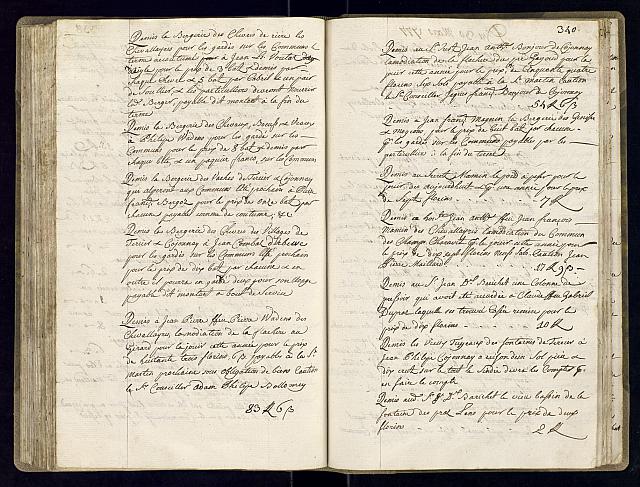 Demis la Bergerie des Chevres de rière les
Chevallayres pour les garder sur les Communs le
terme accoutumé par à Jean Ls
pour le prix de 3 batz & demis par
Chaque & 5 batz par un pair
de Soullier & les particulliers devront nourrir
led. Berger, payable dit montant à la fin du
terme
Demis la Bergerie des Chevaux, Bœufs & Veaux
à Philipe Wadens pour les garder sur les
Communs pour le prix de 8 batz & demis par
chaque bête, & un paquet franc, sur les Communs
Demis la Bergerie des Vaches de Tercier & Cojonnay
qui algeront aux Communs l'Eté prochain à Pierre
franç. Bergoz pour le prix de onze batz par
chacune payable comme de coutume &c
Demis les Bergeries des Chevres des Villages de
Tercier & Cojonnay à Jean
pour les garder sur les Communs l'Eté prochain
pour le prix de dix batz par chacune & en
outre il pourra en garder deux pour son
payable dit montant à bout de service
Demis à Jean Pierre ffeu Pierre Wadens des
Chevallayres, la modiation de la flechere au
Girard pour la jouir cette année pour le prix
de huitante trois florins 6 s. payable à la St.
Martin prochaine sous obligation de biens Caution
le Sr. Conseiller Adam Philipe Dollorney
83 fl 6 s
340
Demis au Sr. Just Jean Anth. Bonjour de Cojonnay
l'amodiation de la flechere pour la
jouir cette année pour le prix de Cinquante quatre
florins six sols payable à la St. Martin Caution
le Sr. Conseiller Jaques franç. Bonjour de Cojonnay
54 fl 6 s
Demis à Jean franç. Magnin la Bergerie des Genisses
& mogeons pour le prix de huit batz par chacune
& les garder sur les Communs payable par les
particuliers à la fin du terme
Demis au Secret. Mamin le pour le
jouir dès aujourdhuit & une année pour le prix
de Sept florins
7 fl
Demis à hon. Jean Anth. ffeu Jean François
Mamin des Chevallayres l'amodiation du Commun
des Champ pr le jouir cette année pour
le prix de dix sept florins neuf sols. Caution Jean
Pierre Maillard
17 fl 9 s
Demis au Sr. Jean Dl. Barichet une Colonne de
qui avoit été accordée à Claude ffeu Gabriel
Dupraz laquelle se trouve cassée remise pour le
prix de dix florins
10 fl
Demis les Vieux Tuyeaux des fontaines de Tercier à
Jean Philipe Cojonnay à raison d'un sol pièce &
dix crutz sur le tout le Sindic devra les Compter &
en faire le compte
Demis aud. Sr. J. Dl. Barichet le vieu bassin de la
fontaine des prez pour le prix de deux
florins
2 fl